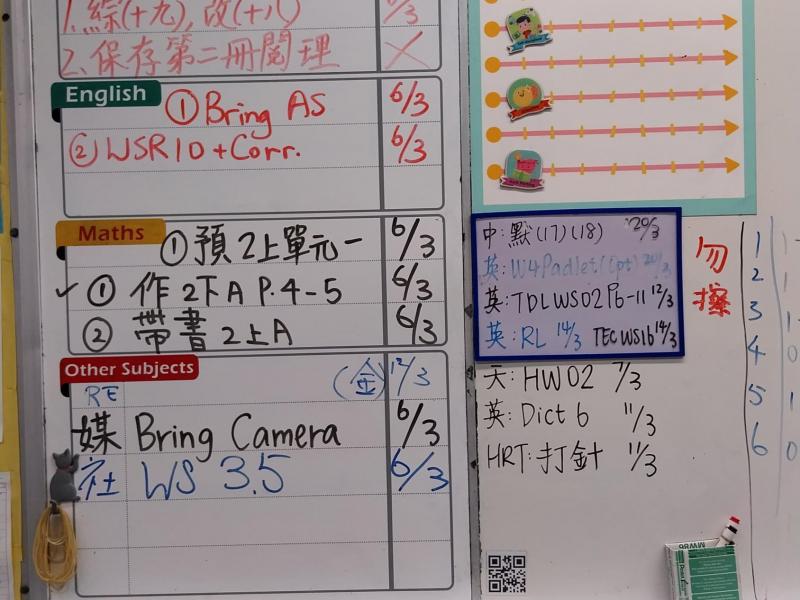 1. 綜(十九), 改(十八) 6/3
2. 保存第二冊閱理 ×
English
① Bring AS 6/3
② WSR10 + Corr. 6/3
Maths
① 預2上單元一 6/3
✓ ① 作2下A P.4-5 6/3
② 帶書2上A 6/3
Other Subjects
RE (金) 12/3
媒 Bring Camera 6/3
社 WS 3.5 6/3
中: 默(17)(18) 20/3
英: W4 Padlet (opt) 20/3
英: TDLWS02 P6-11 12/3
英: RL 14/3 TEC WS16 14/3
天: HW02 7/3
英: Dict 6 11/3
HRT: 打針 11/3
勿擦
1
2
3
4 0
5 1
6 0